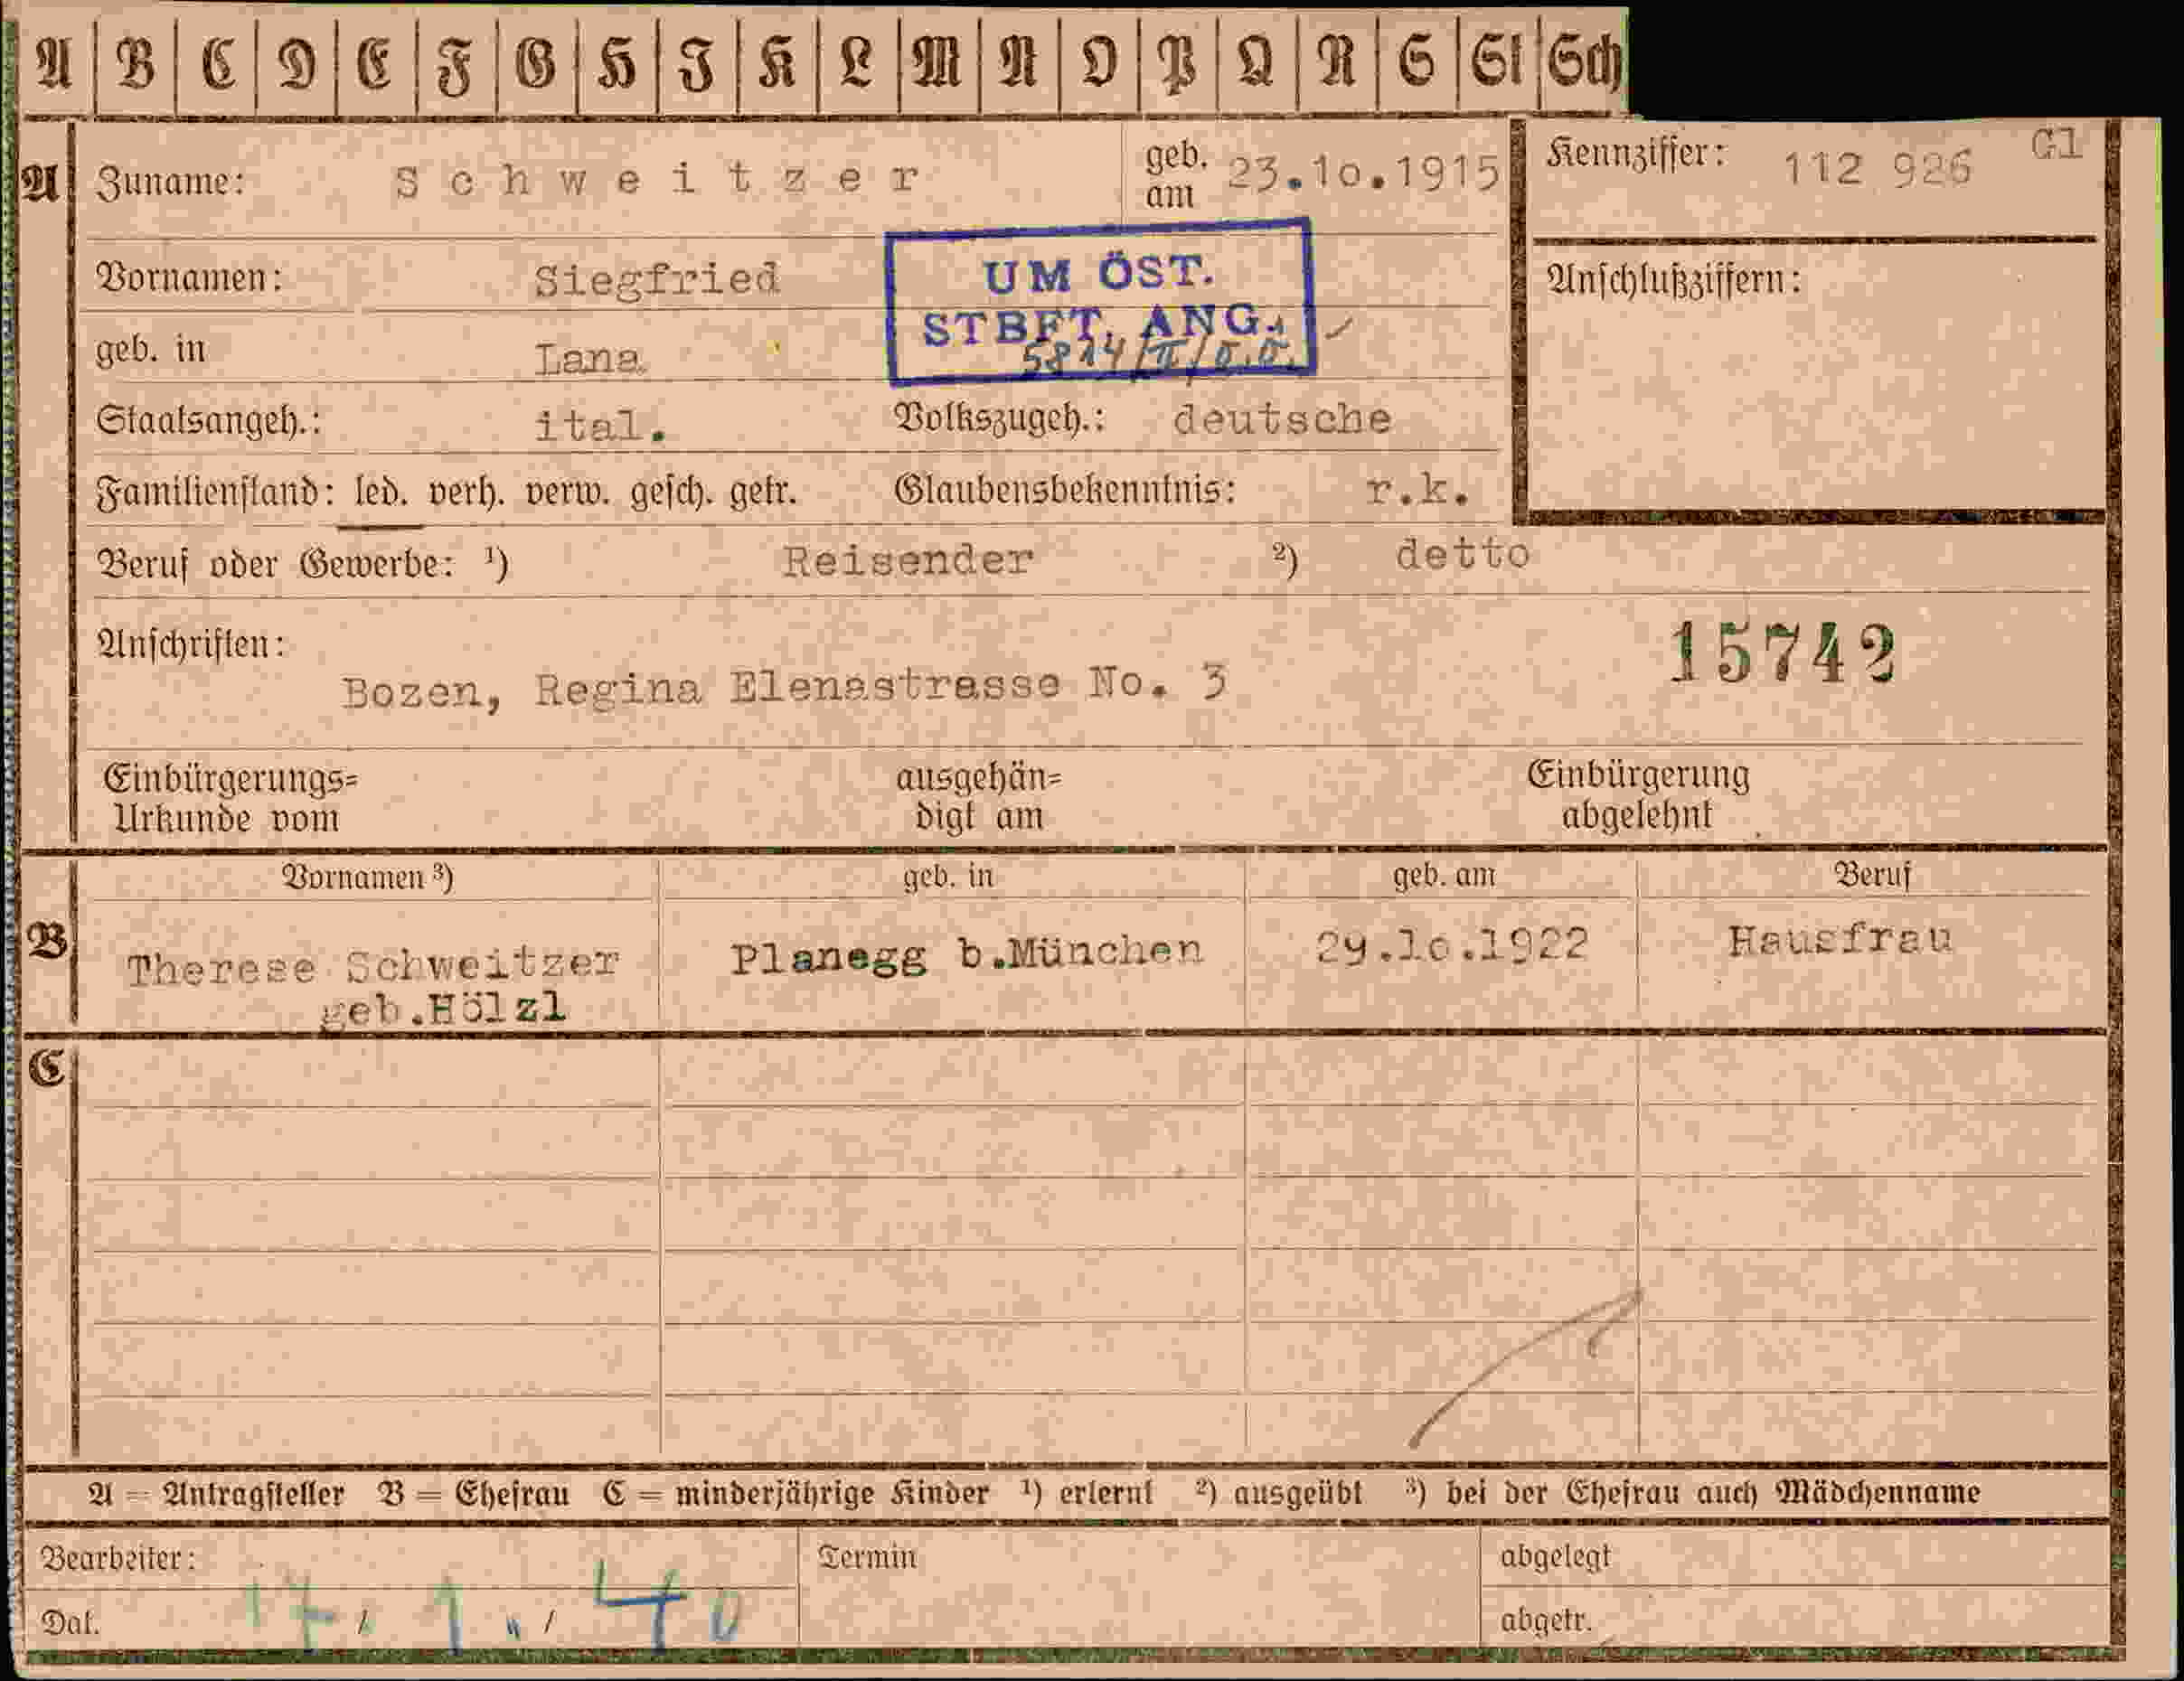 A B C D E F G H I K L M N O P Q R S St Sch
A Zuname: Schweitzer geb. am 23.10.1915 Kennziffer: 112 926 Gl
Vornamen: Siegfried UM ÖST. Anschlußziffern:
STBFT. ANG.
geb. in Lana
Staatsangeh.: ital. Volkszugeh.: deutsche
Familienstand: led. verh. verw. gesch. getr. Glaubensbekenntnis: r.k.
Beruf oder Gewerbe: ¹) Reisender ²) detto
Anschriften: 15742
Bozen, Regina Elenastrasse No. 3
Einbürgerungs= ausgehän= Einbürgerung
Urkunde vom digt am abgelehnt
Vornamen ³) geb. in geb. am Beruf
B Therese Schweitzer Planegg b.München 29.10.1922 Hausfrau
geb.Hölzl
C
A = Antragsteller B = Ehefrau C = minderjährige Kinder ¹) erlernt ²) ausgeübt ³) bei der Ehefrau auch Mädchenname
Bearbeiter: Termin abgelegt
Dat. 17. / 1. / 40 abgetr.